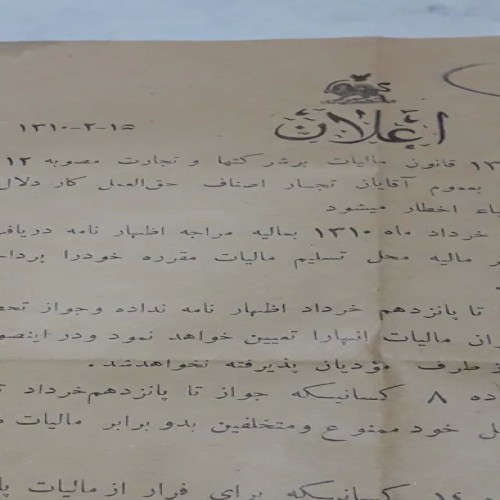 اعلان
۱۳۱۰-۲-۱۵
قانون مالیات بر شرکتها و تجارت مصوبه ۱۲
بعموم آقایان تجار اصناف حق‌العمل کار دلال
اخطار میشود
خرداد ماه ۱۳۱۰ بمالیه مراجه اظهار نامه دریاف
مالیه محل تسلیم مالیات مقرره خودرا بردا
تا پانزدهم خرداد اظهار نامه نداده وجواز تح
ران مالیات آنهارا تعیین خواهد نمود ودر اینصو
از طرف مؤدیان پذیرفته نخواهدشد.
ده ۸ کسانیسکه جواز تا پانزدهم‌خرداد
خود ممنوع ومتخلفین بدو برابر مالیات
کسانیسکه برای فرار از مالیات